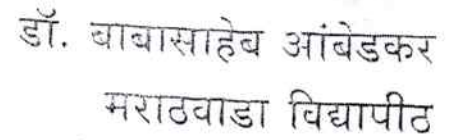 डॉ. बाबासाहेब आंबेडकर
मराठवाडा विद्यापीठ